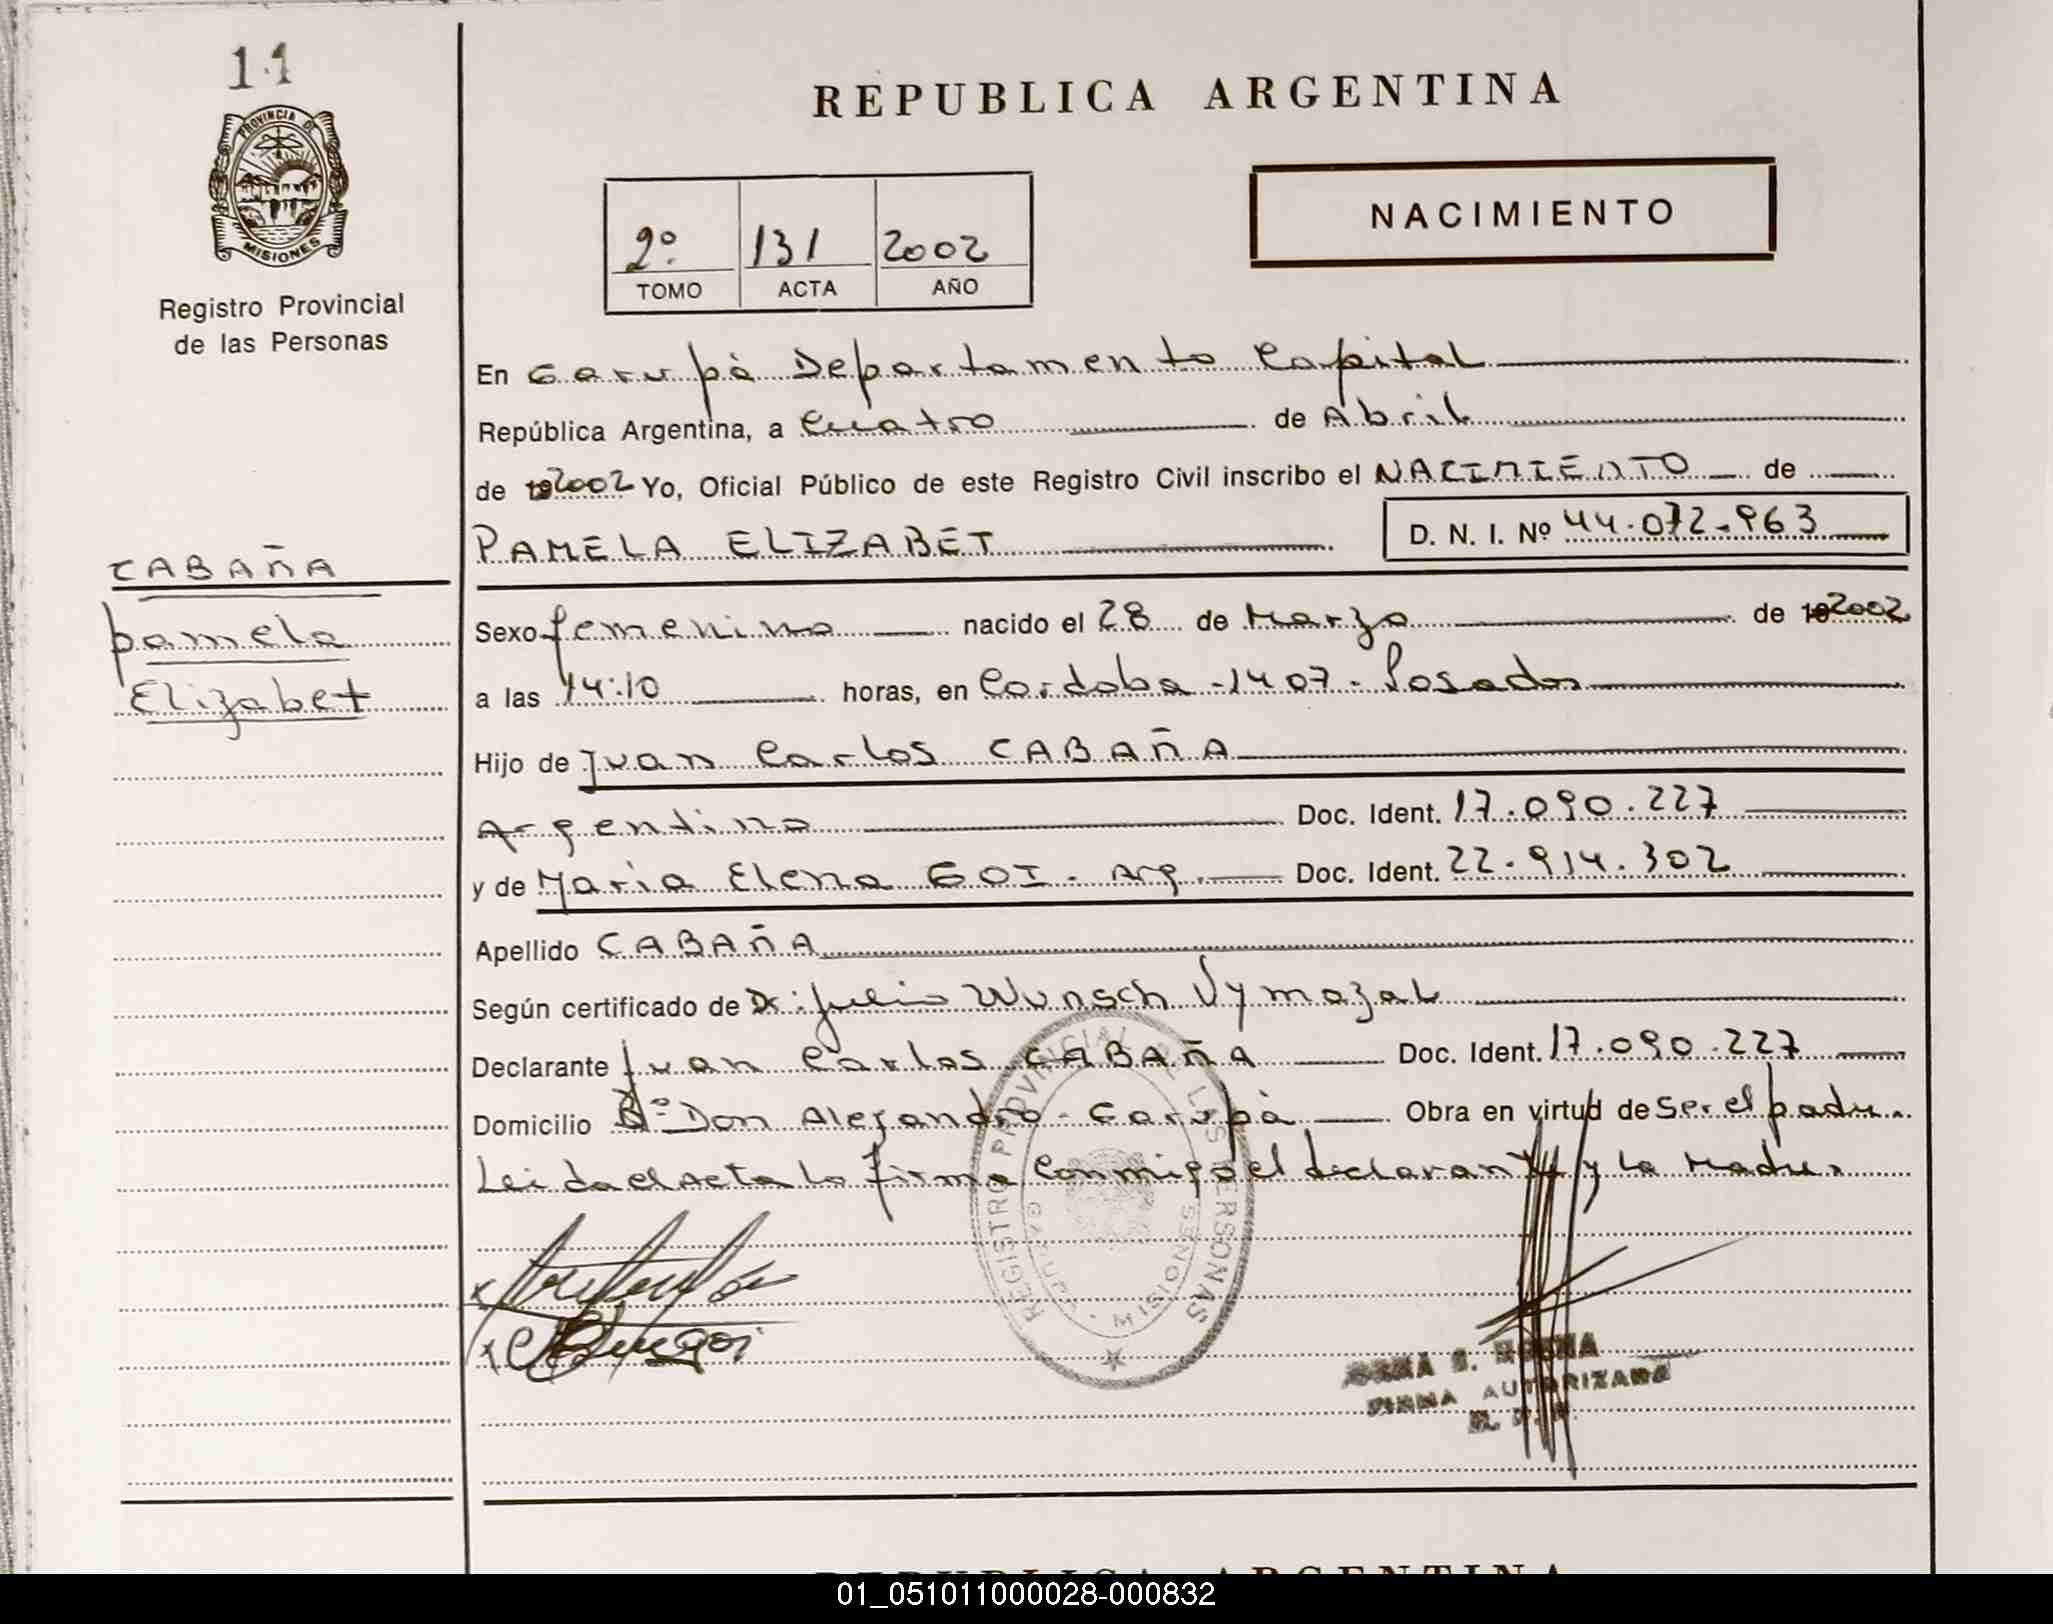 11
PROVINCIA DE
MISIONES
Registro Provincial
de las Personas
REPUBLICA ARGENTINA
2º 131 2002
TOMO ACTA AÑO
NACIMIENTO
En Garupà Departamento Capital
República Argentina, a Cuatro de Abril
de 192002 Yo, Oficial Público de este Registro Civil inscribo el NACIMIENTO de
PAMELA ELIZABET D. N. I. Nº 44.072.963
CABAÑA
Pamela
Elizabet
Sexo femenino nacido el 28 de Marzo de 192002
a las 14:10 horas, en Cordoba - 1407 - Posadas
Hijo de Juan Carlos CABAÑA
Argentino Doc. Ident. 17.090.227
y de Maria Elena GOI - Arg. Doc. Ident. 22.914.302
Apellido CABAÑA
Según certificado de Dr: Julio Wunsch Vymazal
Declarante Juan Carlos CABAÑA Doc. Ident. 17.090.227
Domicilio Bº Don Alejandro - Garupà Obra en virtud de Ser el padre.
Leida el Acta la firma Conmigo el declarante y la Madre.
REGISTRO PROVINCIAL DE LAS PERSONAS
GARUPA - MISIONES
FIRMA AUTORIZADA
REPUBLICA ARGENTINA
01_051011000028-000832